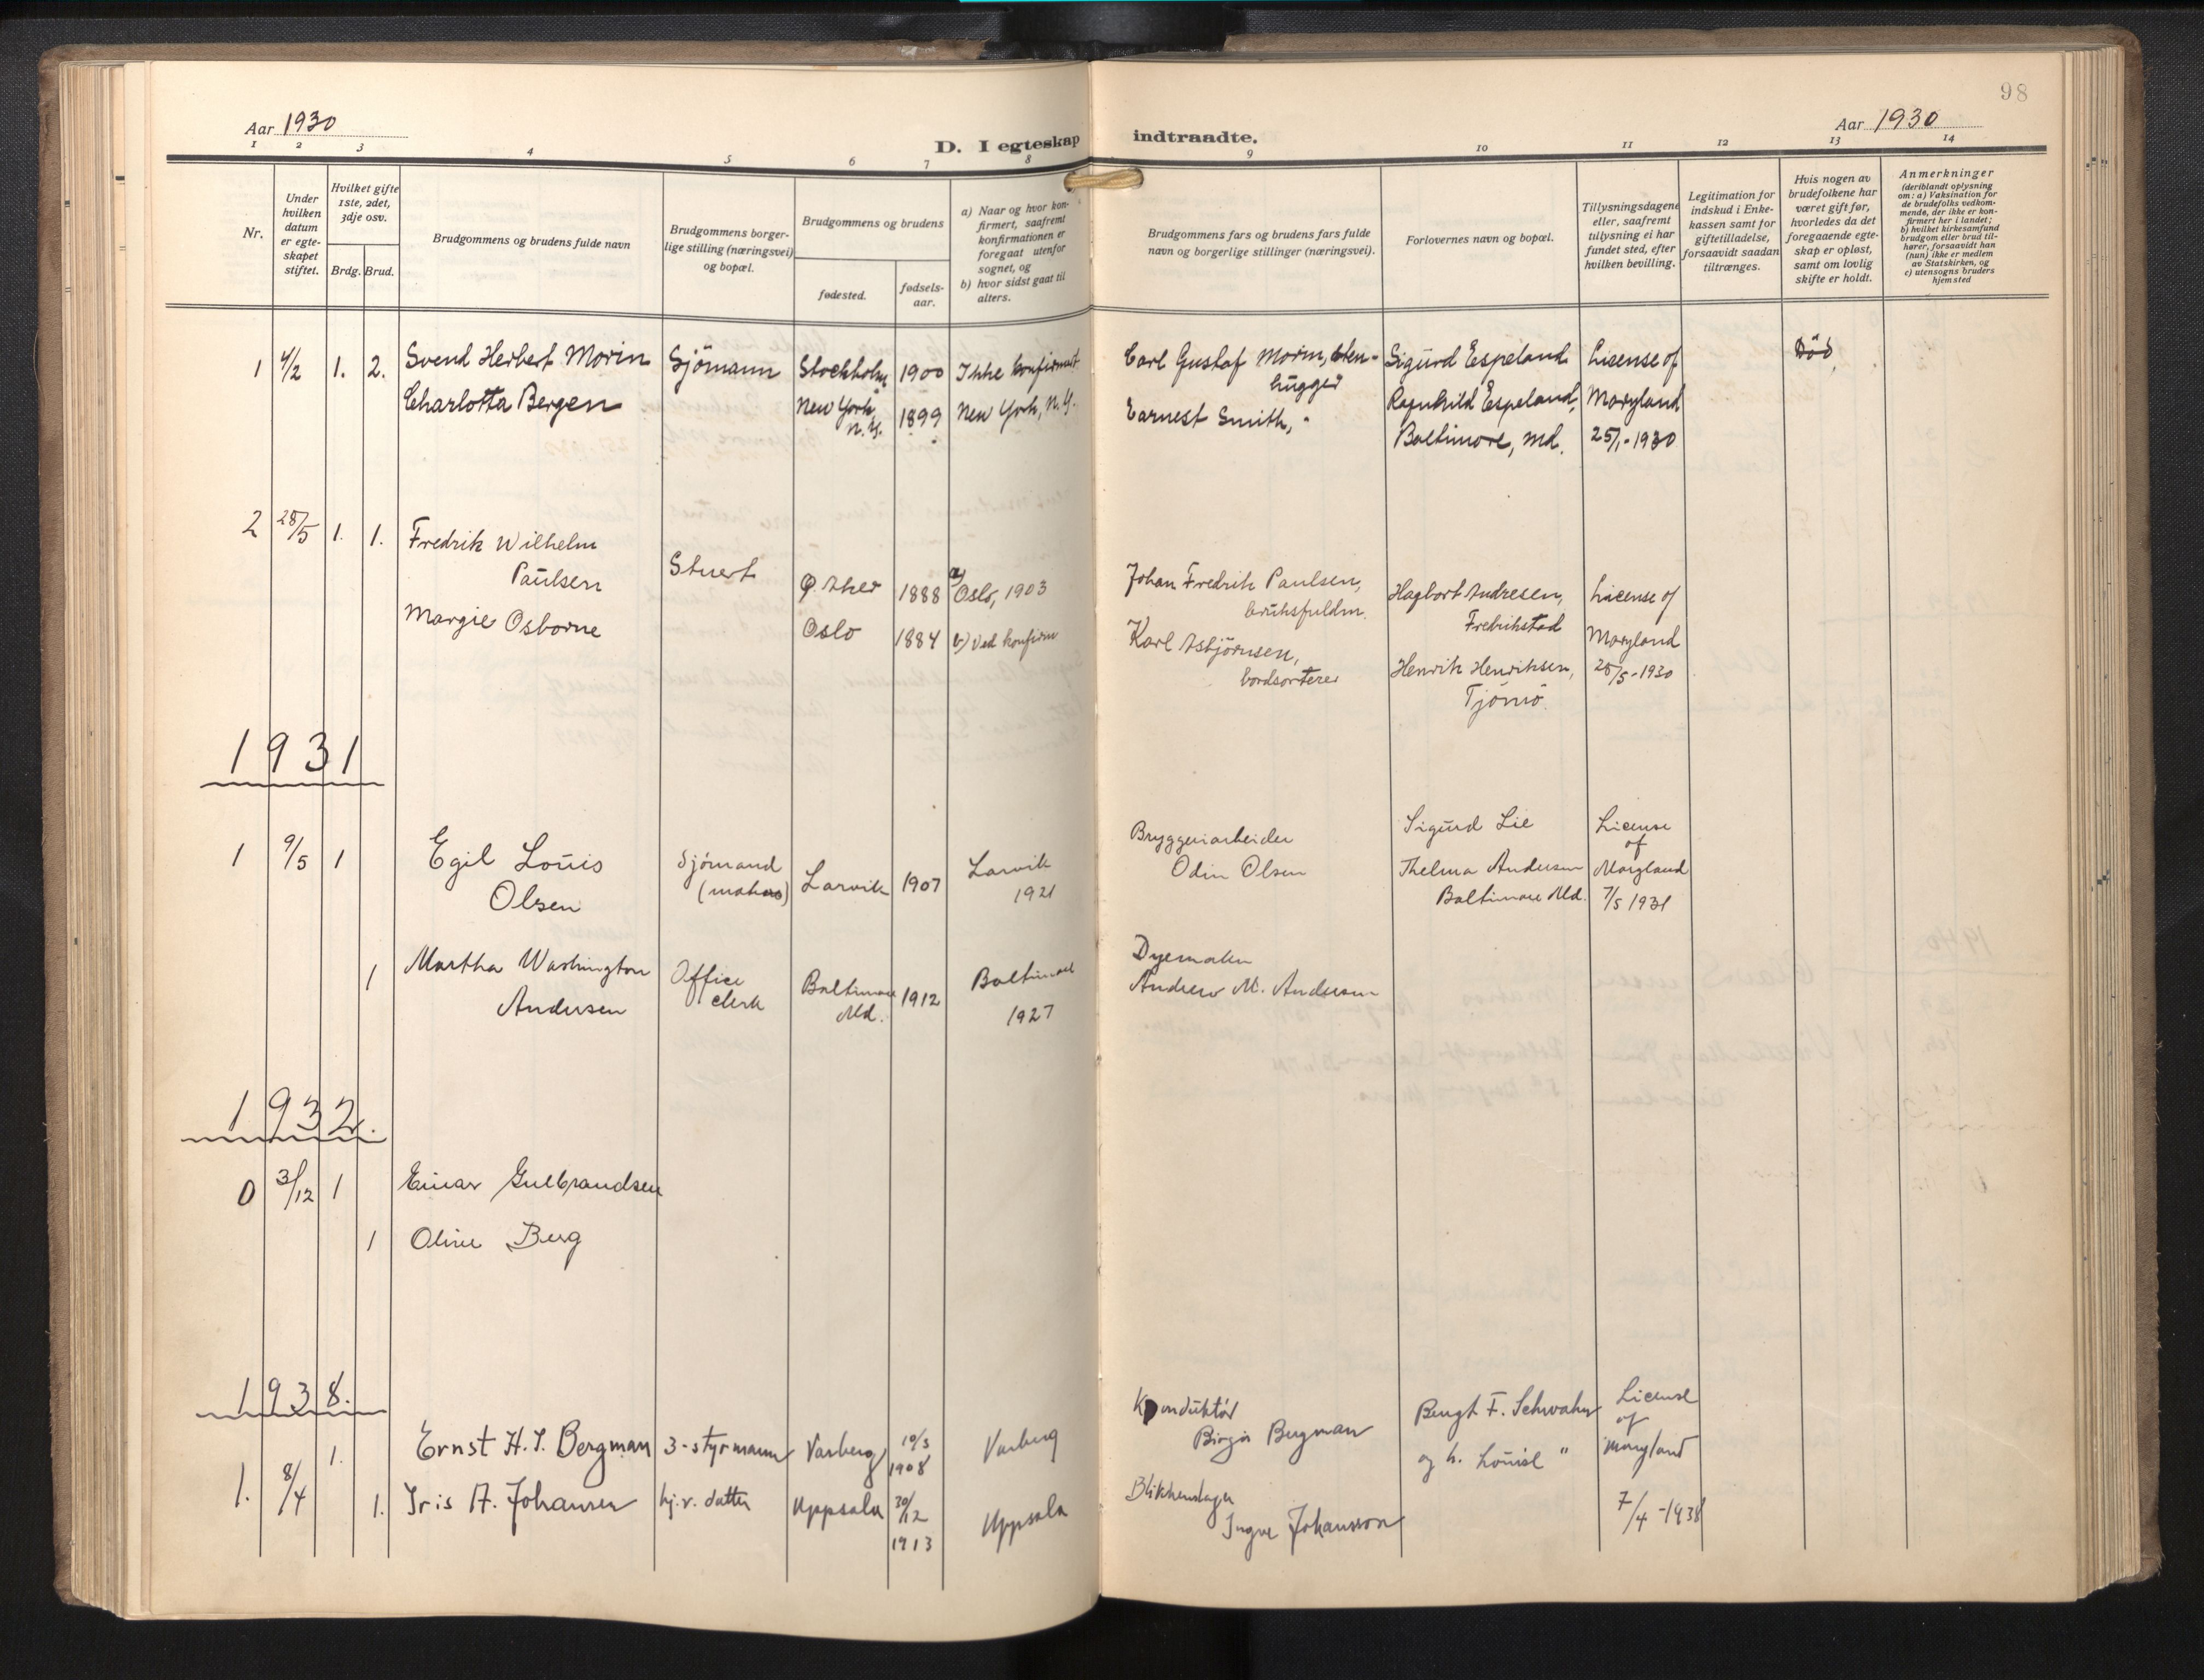 98
Aar 1930
D. I egteskap indtraadte.
Aar 1930
1 2 3 4 5 6 7 8 9 10 11 12 13 14
Nr.
Under hvilken datum er egteskapet stiftet.
Hvilket gifte 1ste, 2det, 3dje osv.
Brdg. Brud.
Brudgommens og brudens fulde navn
Brudgommens borgerlige stilling (næringsvei) og bopæl.
Brudgommens og brudens
fødested.
fødselsaar.
a) Naar og hvor konfirmert, saafremt konfirmationen er foregaat utenfor sognet, og
b) hvor sidst gaat til alters.
Brudgommens fars og brudens fars fulde navn og borgerlige stillinger (næringsvei).
Forlovernes navn og bopæl.
Tillysningsdagene eller, saafremt tillysning ei har fundet sted, efter hvilken bevilling.
Legitimation for indskud i Enkekassen samt for giftetilladelse, forsaavidt saadan tiltrænges.
Hvis nogen av brudefolkene har været gift før, hvorledes da det foregaaende egteskap er opløst, samt om lovlig skifte er holdt.
Anmerkninger
(deriblandt oplysning om: a) Vaksination for de brudefolks vedkommende, der ikke er konfirmert her i landet; b) hvilket kirkesamfund brudgom eller brud tilhører, forsaavidt han (hun) ikke er medlem av Statskirken, og c) utensogns bruders hjemsted
1 4/2 1. 2. Svend Herbert Morin Sjömann Stockholm 1900 Ikke konfirmert Carl Gustaf Morin, stenhugger Sigurd Espeland License of Död
Charlotta Bergen New York, N.Y. 1899 New York, N.Y. Earnest Smith, - Ragnhild Espeland, Maryland
Baltimore, Md. 25/1-1930
2 28/5 1. 1. Fredrik Wilhelm
Paulsen Stuert 1888 a) Oslo, 1903 Johan Fredrik Paulsen, bruksfuldm. Hagbart Andresen, Fredrikstad License of
Margie Osborne Oslo 1884 b) Ved konfirm Karl Asbjörnsen, bordsorterer Henrik Henriksen, Tjömö. Maryland
28/5-1930
1931
1 9/5 1 Egil Louis
Olsen Sjömand (matros) Larvik 1907 Larvik 1921 Bryggeriarbeider
Odin Olsen Sigurd Lie
Thelma Andersen
Baltimore Md. License
of
Maryland
7/5 1931
1 Martha Washington
Andersen Office
clerk Baltimore
Md. 1912 Baltimore
1927
Andrew M. Andersen
1932.
0 3/12 1 Einar Gulbrandsen
1 Oline Berg
1938.
1. Ernst H. I. Bergman 3-styrmann Varberg 10/3
1908 Varberg Konduktör
Birger Bergman Bengt F. Schwahn
og h. Louise " License
of
Maryland
1. 8/4 1. Iris A. Johansen hj.v. datter Uppsala 30/12
1913 Uppsala Blikkenslager
Ingve Johansson 7/4-1938